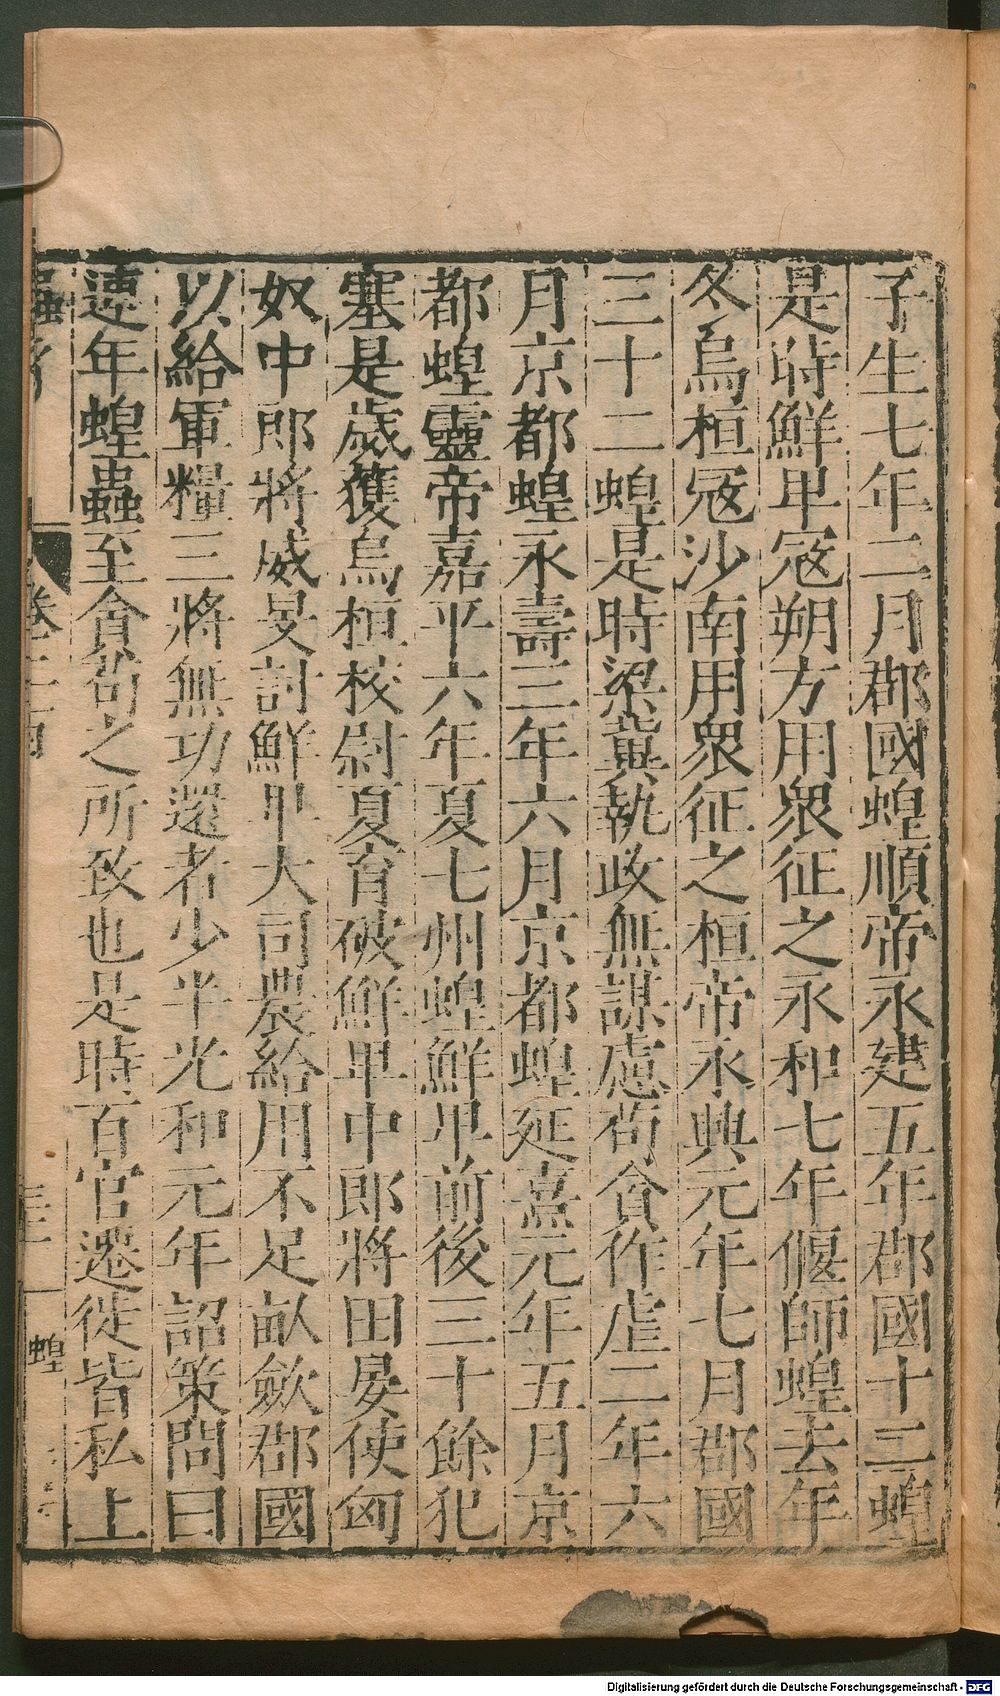 子生七年二月郡國蝗順帝永建五年郡國十二蝗
是時鮮卑寇朔方用眾征之永和七年偃師蝗去年
冬烏桓寇沙南用眾征之桓帝永興元年七月郡國
三十二蝗是時梁冀執政無謀慮苟貪作虐二年六
月京都蝗永壽三年六月京都蝗延熹元年五月京
都蝗靈帝嘉平六年夏七州蝗鮮卑前後三十餘犯
塞是歲護烏桓校尉夏育破鮮卑中郎將田晏使匈
奴中郎將臧旻討鮮卑大司農給用不足畝斂郡國
以給軍糧三將無功還者少半光和元年詔策問曰
連年蝗蟲至貪苛之所致也是時百官遷徙皆私上
蝗
Digitalisierung gefördert durch die Deutsche Forschungsgemeinschaft - DFG